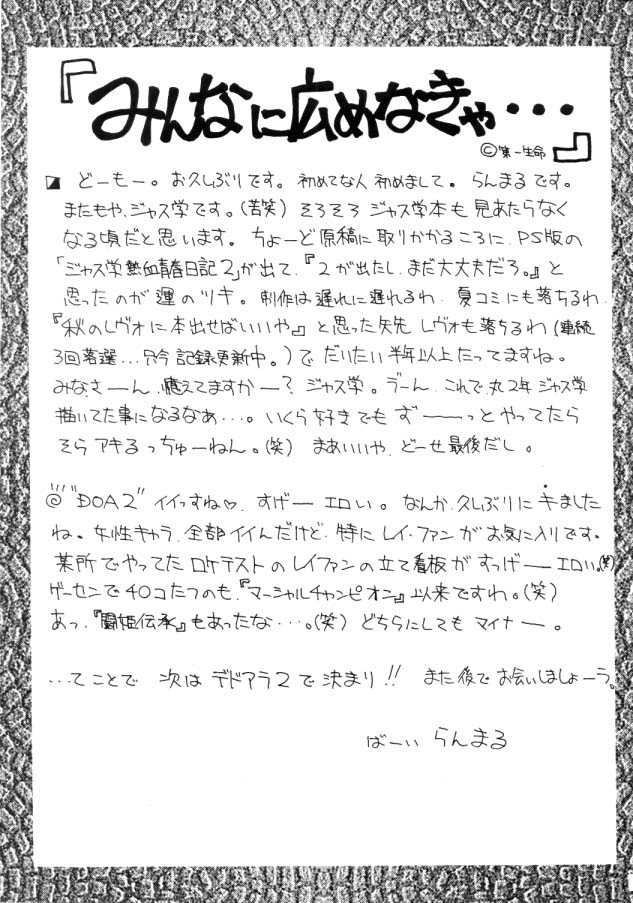 『みんなに広めなきゃ・・・』
©第一生命
どーもー。お久しぶりです。初めてな人初めまして。らんまるです。
またもや、ジャス学です。(苦笑) そろそろ ジャス学本も 見あたらなく
なる頃だと思います。ちょーど原稿に取りかかるころに、PS版の
「ジャス学熱血青春日記2」が出て、『2が出たし、まだ大丈夫だろ。』と
思ったのが運のツキ。制作は遅れに遅れるわ、夏コミにも落ちるわ、
『秋のレヴォに本出せばいいや』と思った矢先 レヴォも落ちるわ(連続
3回落選…只今記録更新中。)で だいたい半年以上たってますね。
みなさーん、憶えてますかー？ジャス学。うーん、これで、丸2年 ジャス学
描いてた事になるなぁ…。いくら好きでも ずーーーっと やってたら
そら アキるっちゅーねん。(笑) まあいいや、どーせ最後だし。
@"DOA2"イイっすね♡、すげーエロい。なんか、久しぶりにキました
ね。女性キャラ、全部イイんだけど、特にレイ・ファンがお気に入りです。
某所でやってたロケテストのレイファンの立て看板がすっげーエロい。(笑)
ゲーセンで40コたつのも、『マーシャルチャンピオン』以来ですわ。(笑)
あっ、『闘姫伝承』もあったな・・・。(笑) どちらにしても マイナー。
…てことで 次は デドアラ2で決まり!! また後で お会いしましょーう。
ばーい らんまる